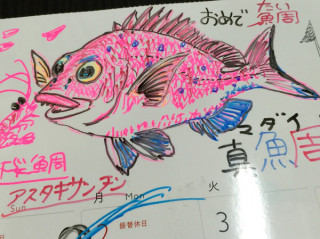 おめで たい
鯛
桜鯛
アスタキサンチン
マダイ
真鯛
Sun 月 Mon 火
振替休日 3